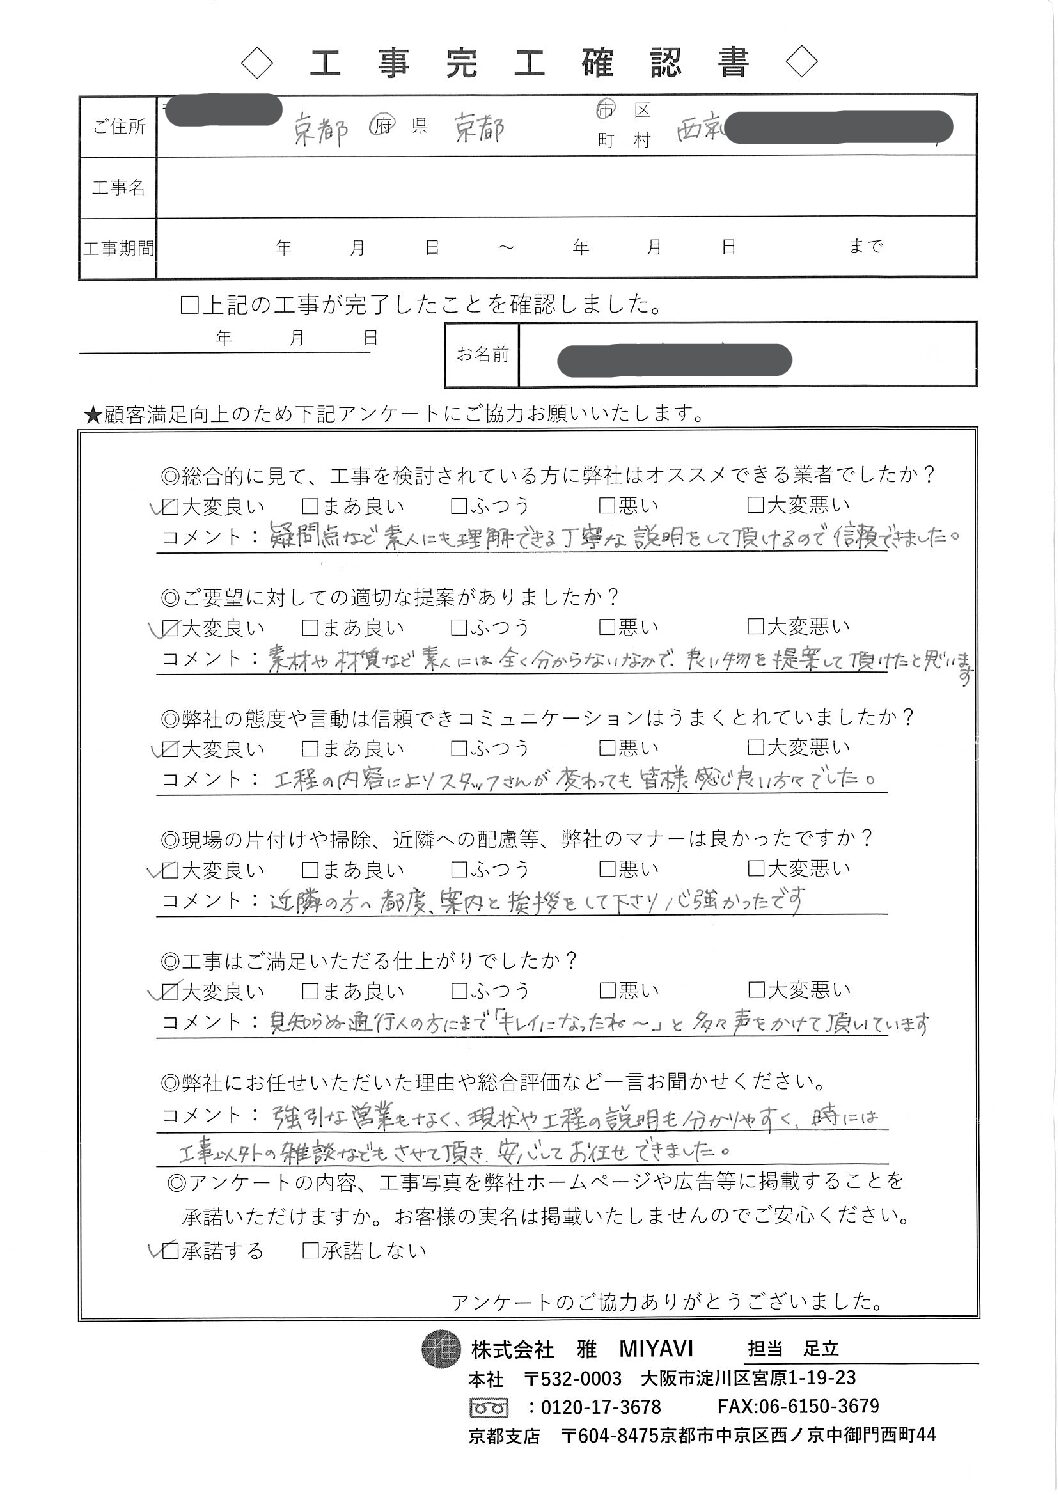 ◇ 工事完工確認書 ◇
ご住所 京都 府 県 京都 市 区 町 村 西京
工事名
工事期間 年 月 日 ～ 年 月 日 まで
□上記の工事が完了したことを確認しました。
年 月 日
お名前
★顧客満足向上のため下記アンケートにご協力お願いいたします。
◎総合的に見て、工事を検討されている方に弊社はオススメできる業者でしたか？
☑大変良い □まあ良い □ふつう □悪い □大変悪い
コメント：疑問点など素人にも理解できる丁寧な説明をして頂けるので信頼できました。
◎ご要望に対しての適切な提案がありましたか？
☑大変良い □まあ良い □ふつう □悪い □大変悪い
コメント：素材や材質など素人には全く分からないなかで、良い物を提案して頂けたと思います
◎弊社の態度や言動は信頼できコミュニケーションはうまくとれていましたか？
☑大変良い □まあ良い □ふつう □悪い □大変悪い
コメント：工程の内容によりスタッフさんが変わっても皆様感じ良い方々でした。
◎現場の片付けや掃除、近隣への配慮等、弊社のマナーは良かったですか？
☑大変良い □まあ良い □ふつう □悪い □大変悪い
コメント：近隣の方へ都度、案内と挨拶をして下さり心強かったです
◎工事はご満足いただる仕上がりでしたか？
☑大変良い □まあ良い □ふつう □悪い □大変悪い
コメント：見知らぬ通行人の方にまで「キレイになったね～」と多々声をかけて頂いています
◎弊社にお任せいただいた理由や総合評価など一言お聞かせください。
コメント：強引な営業もなく、現状や工程の説明も分かりやすく、時には
工事以外の雑談などもさせて頂き、安心してお任せできました。
◎アンケートの内容、工事写真を弊社ホームページや広告等に掲載することを
承諾いただけますか。お客様の実名は掲載いたしませんのでご安心ください。
☑承諾する □承諾しない
アンケートのご協力ありがとうございました。
雅 株式会社 雅 MIYAVI 担当 足立
本社 〒532-0003 大阪市淀川区宮原1-19-23
：0120-17-3678 FAX:06-6150-3679
京都支店 〒604-8475京都市中京区西ノ京中御門西町44